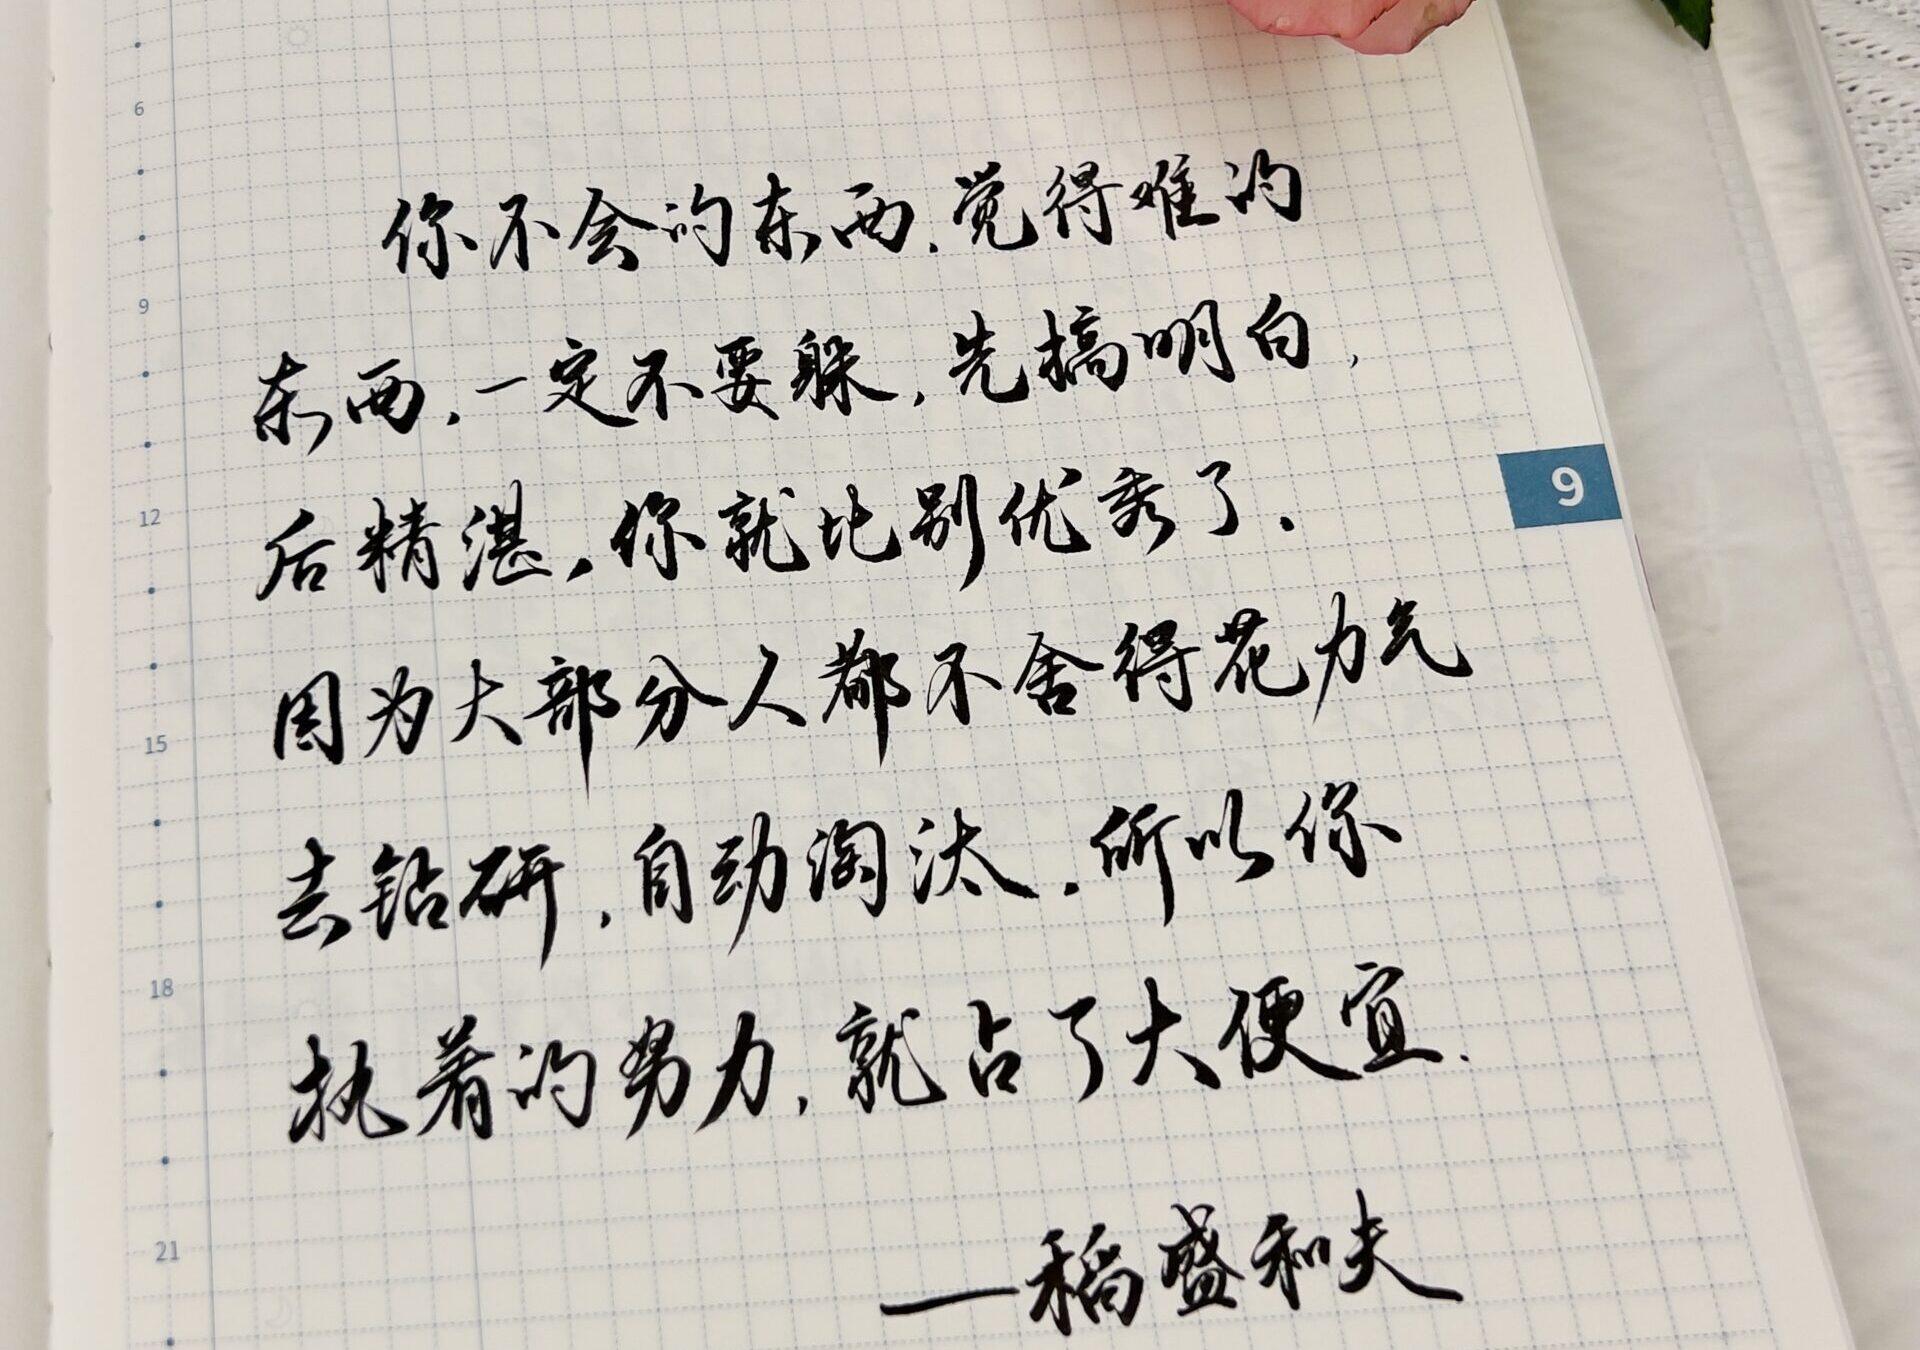 6
你不会的东西,觉得难的
9
东西,一定不要躲,先搞明白,
9
12
后精湛,你就比别优秀了.
因为大部分人都不舍得花力气
15
去钻研,自动淘汰.所以你
18
执着的努力,就占了大便宜.
21
——稻盛和夫